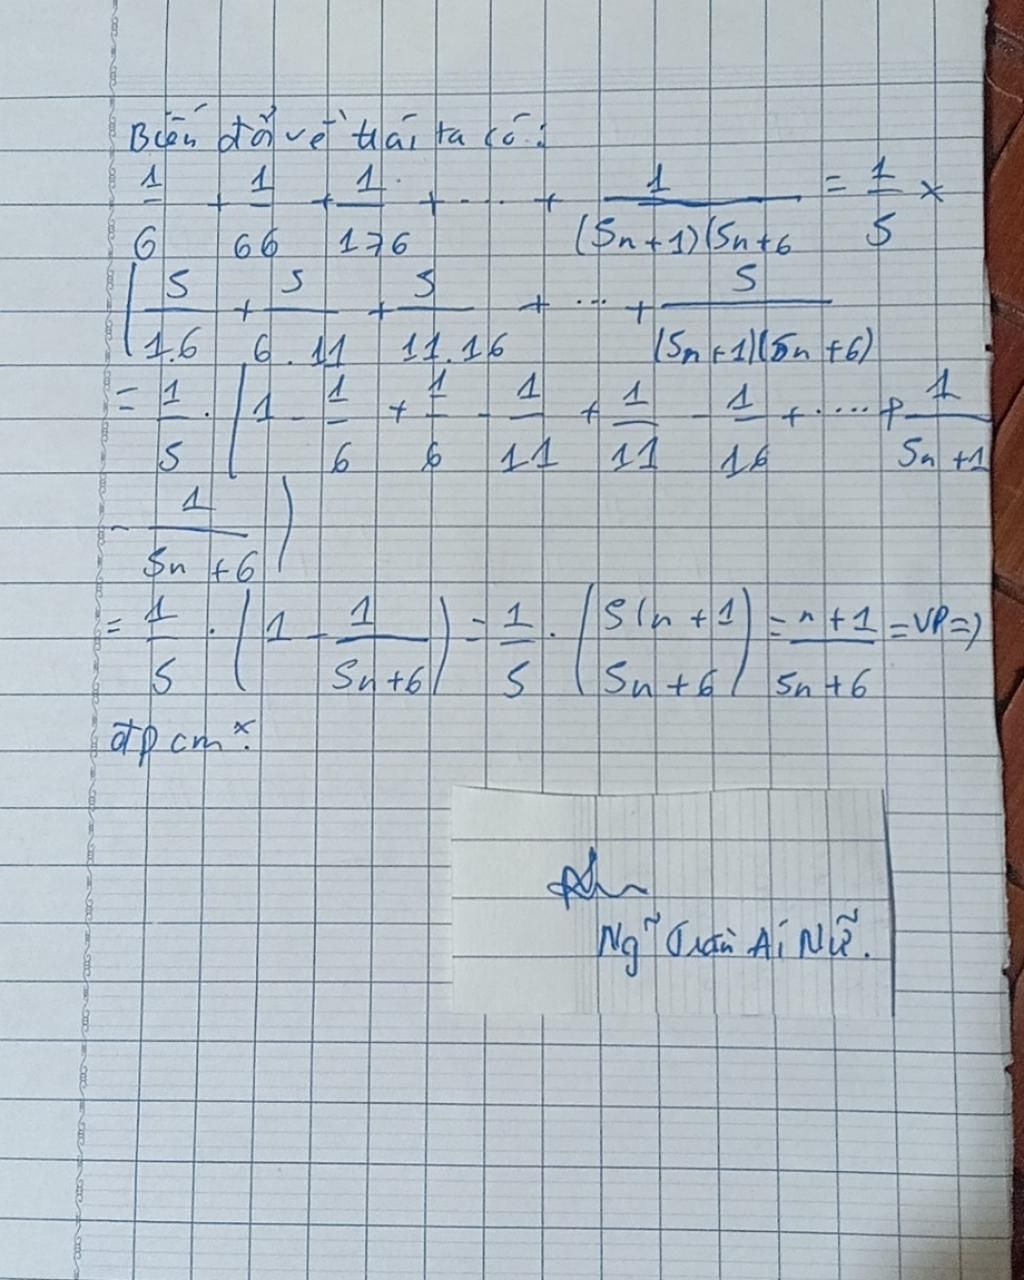 Biến đổi vế trái ta có:
1/6 + 1/66 + 1/176 + .... + 1/((5n+1)(5n+6 = 1/5 ×
(5/1.6 + 5/6.11 + 5/11.16 + ... + 5/(5n+1)(5n+6)
= 1/5 . (1 - 1/6 + 1/6 - 1/11 + 1/11 - 1/16 + .... + 1/5n+1
- 1/5n+6)
= 1/5 . (1 - 1/5n+6) = 1/5 . (5(n+1/5n+6) = n+1/5n+6 = VP =)
đpcm
Ng~ Trần Ái Nữ.